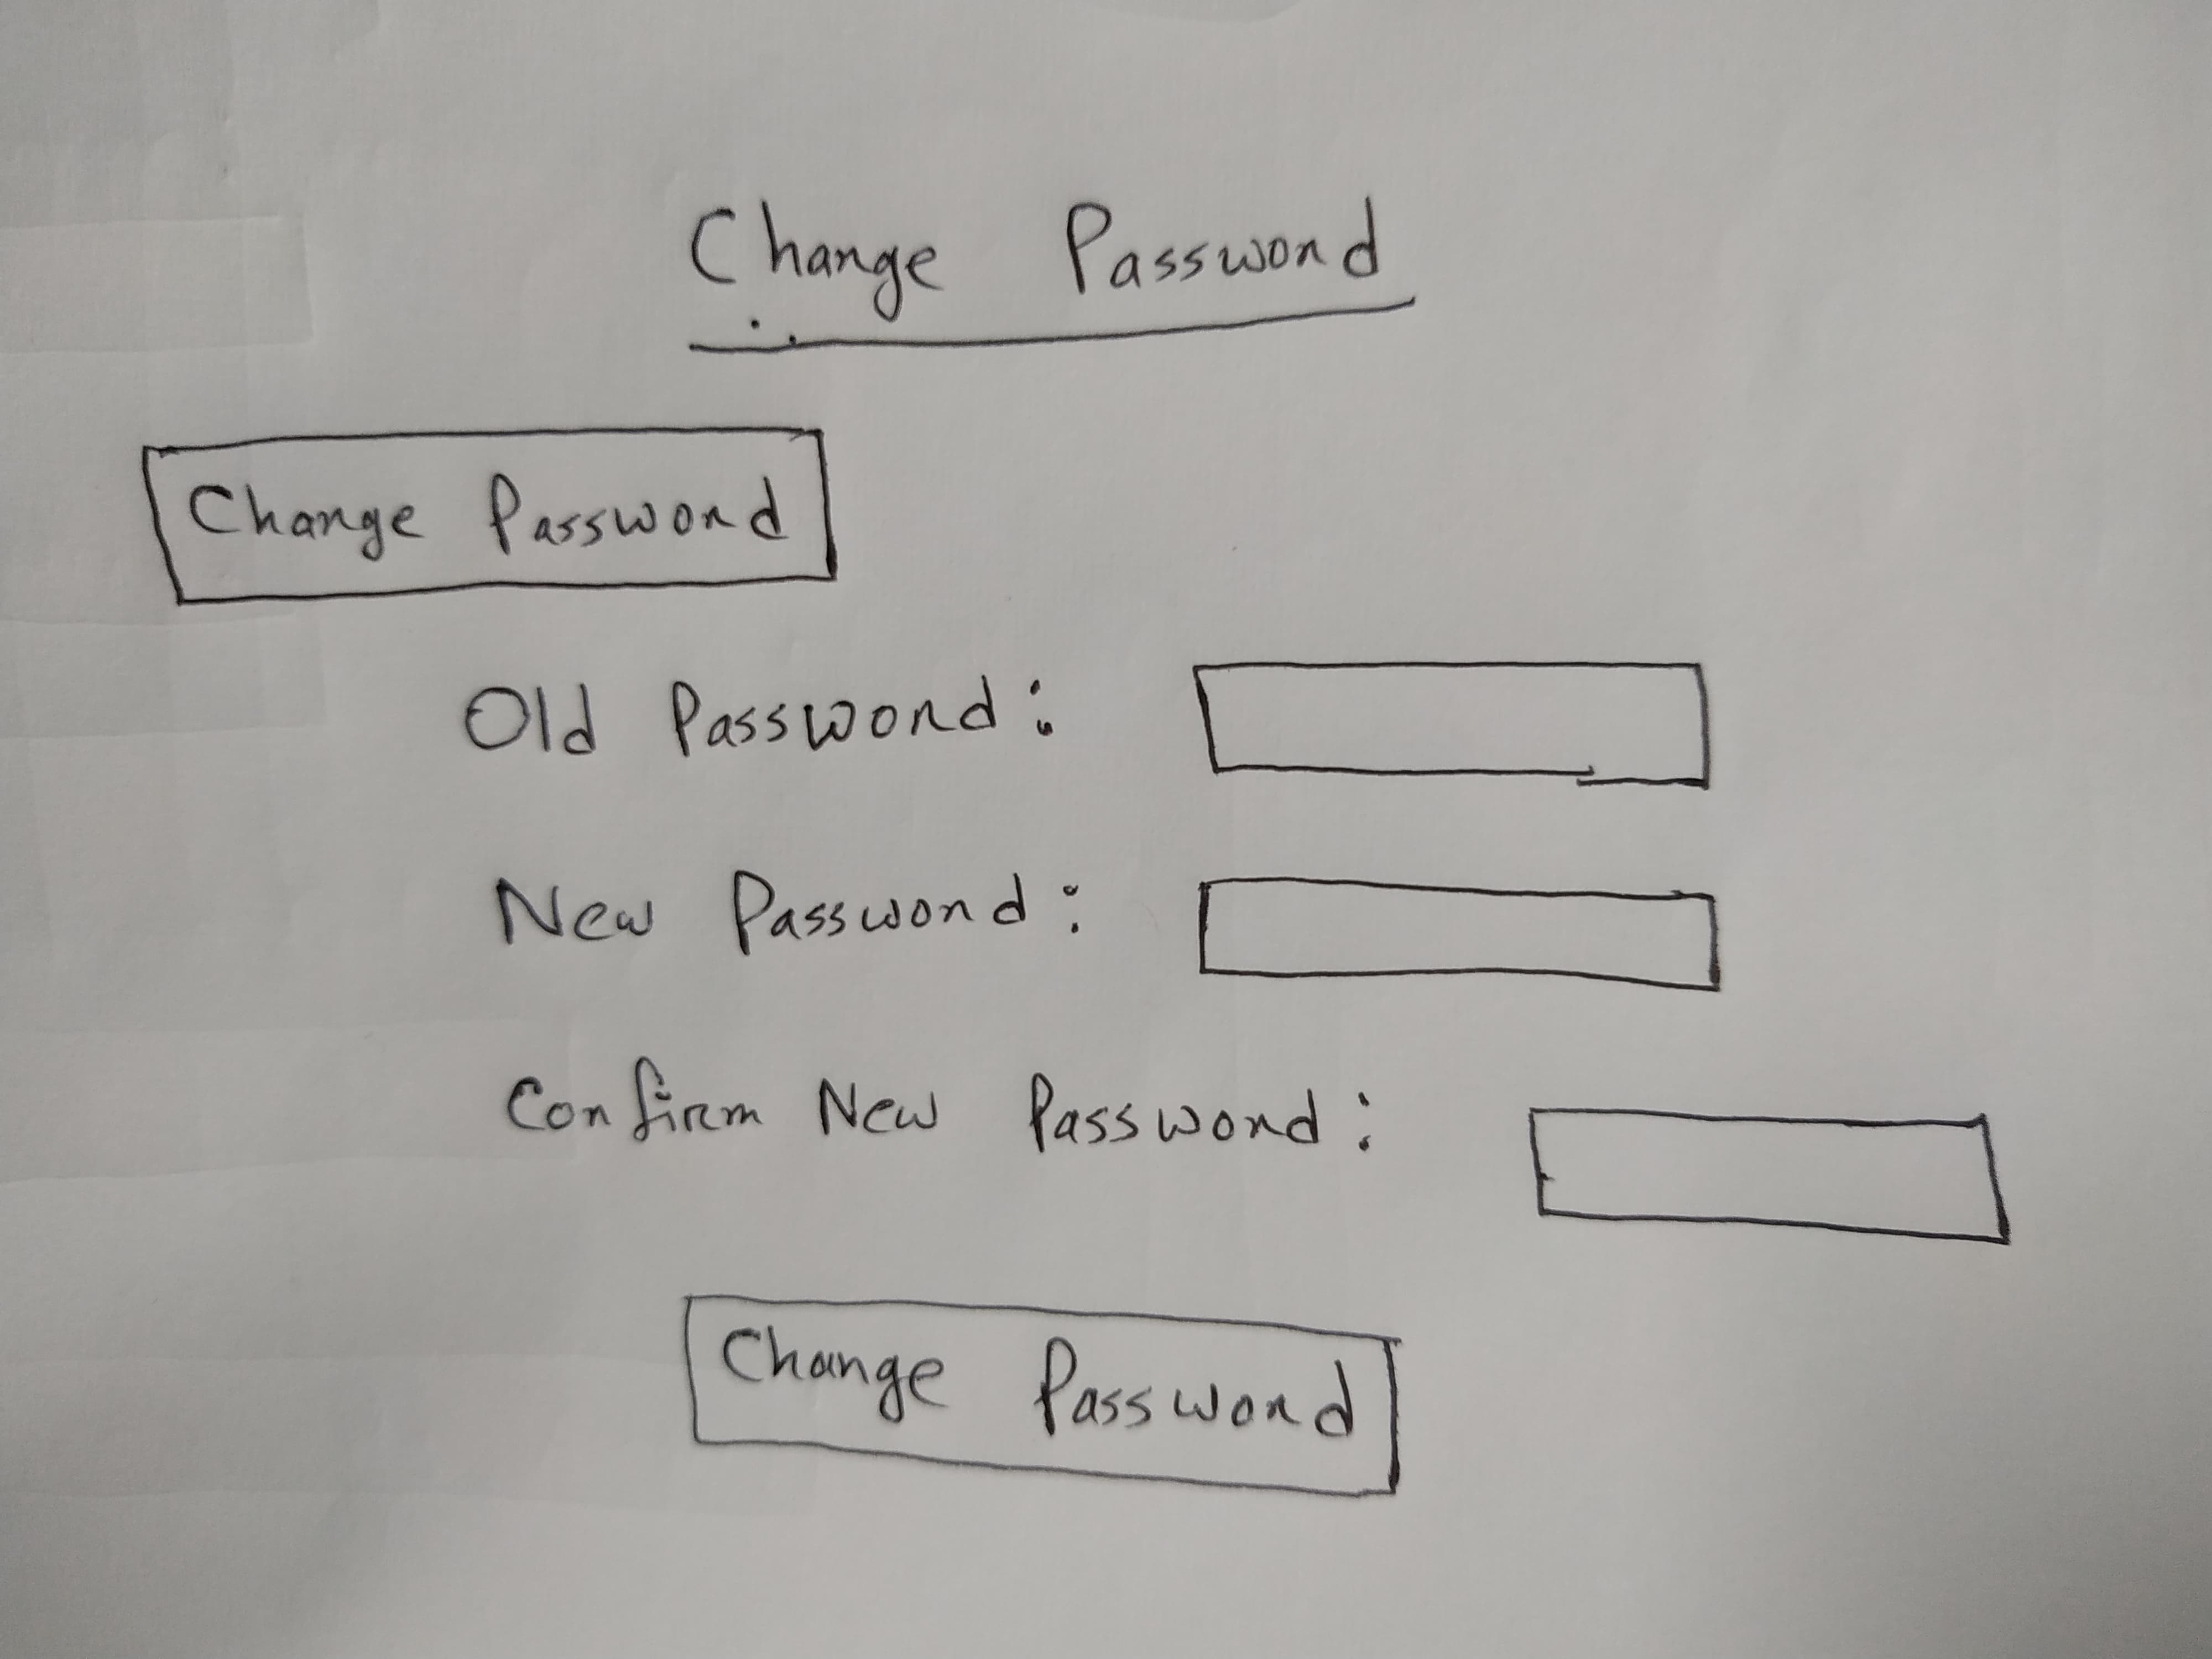 Change Password
Change Password
Old Password:
New Password:
Confirm New Password:
Change Password